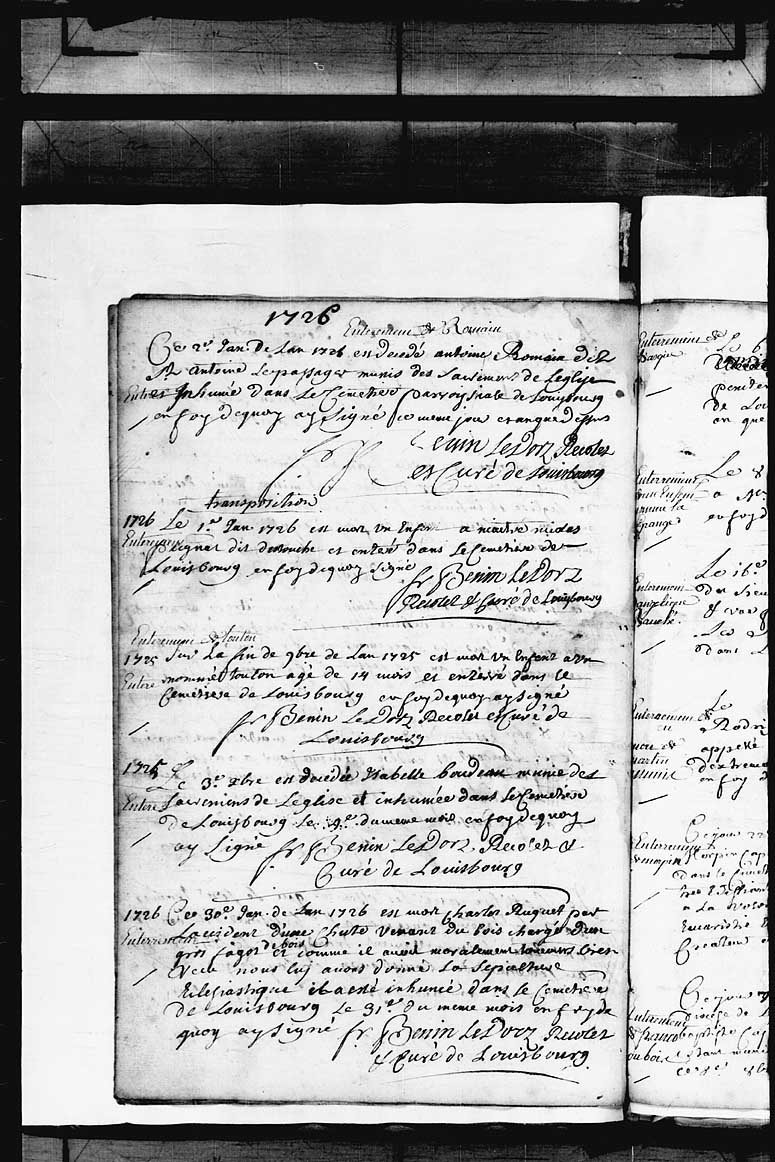 1726
Enterrement de Romain
Ce 2e Jan. de Lan 1726 est decedé antoine Romain dit
St antoine Le passager munis des sacrements de Leglise
Enter Inhumé dans Le Cemetiere Paroyssiale de Louysbourg
en foy de quoy ay signé ce meme jour et an que dessus
fr Benin LeDorz Recolet
et Curé de Louisbourg
transposition
1726 Le 1er Jan 1726 est mort un Enfant a maitre nicolas
Enterrement
pregnat dit et enteré dans Le Cemetiere de
Louisbourg en foy de quoy signé
fr Benin LeDorz
Recolet & Curé de Louysbourg
Enterrement de touton
1725 Sur La fin de 9bre de Lan 1725 est mort un Enfant a un
Enteré nommé touton agé de 14 mois et enterré dans le
Cemetiere de Louisbourg en foy de quoy ay signé
fr Benin LeDorz Recolet et Curé de
Louisbourg
1725 Le 3e xbre est decedée Isabelle boudeau munie des
Enteré Sacremens de Leglise et inhumée dans le Cemetiere
de Louisbourg Le 4e du meme mois en foy de quoy
ay Signé fr Benin LeDorz Recolet &
Curé de Louisbourg
1726 Ce 30e Jan. de Lan 1726 est mort Charles Ruquet par
Enterrement Laccident dune Chute venant du bois chargé dun
gros fagot de bois et comme il avoit moralement toujours bien
vecu nous luy avons donné La Sepulture
Eclesiastique il a esté inhumé dans le Cemetiere
de Louisbourg Le 31e du meme mois en foy de
quoy ay signé fr Benin LeDorz Recolet
& Curé de Louisbourg
Enterrement de Le 6
peniten
de Lou
en que
Enterrement Le 8
dun Enfant a Mr
en foy d
Enterrement Le 16e
angelique du sieur
dans L
Enterrement de Le
Rodri
appellé
martin dextreme
en foy d
Enterrement Ce jour 22
dans le Cimet
a La
Eucaristie
Createur
Enterrement Ce jour
de francois diocese de L
dubois